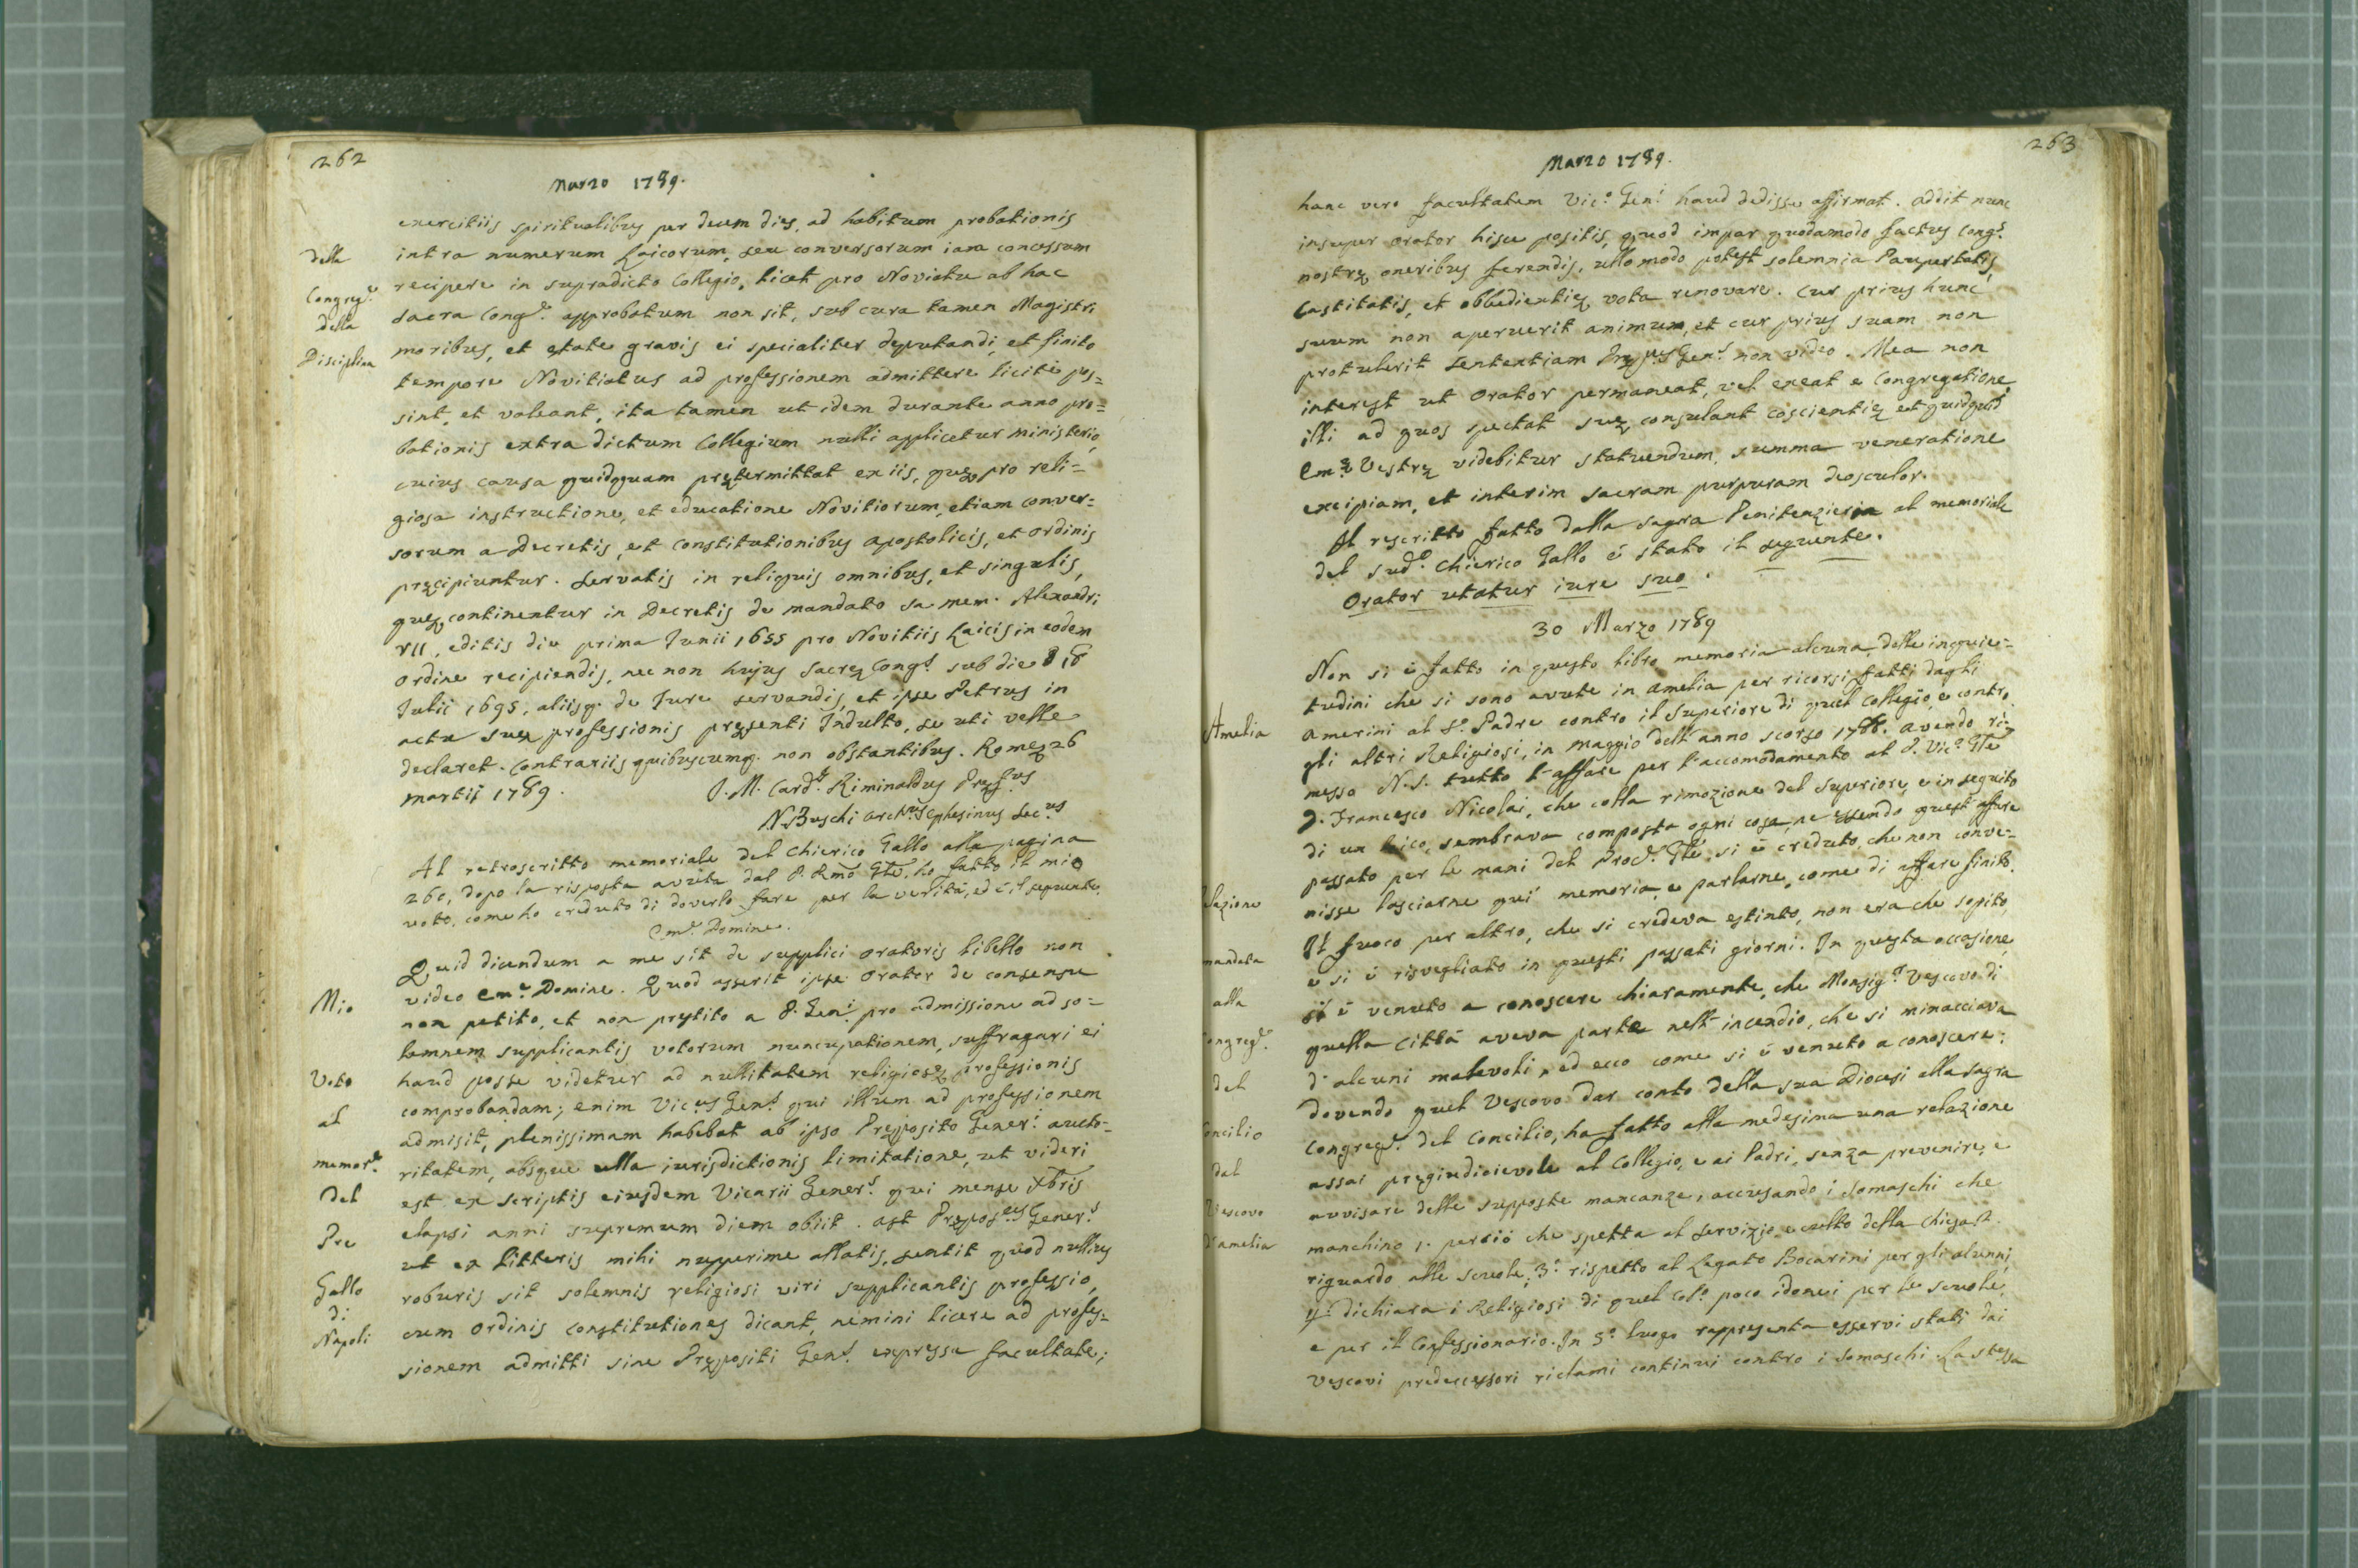 262
Marzo 1789.
exercitiis spiritualibus per decem dies, ad habitum probationis
della
intra numerum Laicorum, seu conversorum iam concessum
Congreg.e
recipere in supradicto Collegio, licet pro Noviatu ab hac
della
sacra Cong.e approbatum non sit, sub cura tamen Magistri
Disciplina
moribus, et ętate gravis ei specialiter deputandi, et finito
tempore Novitiatus ad professionem admittere licitè pos=
sint, et valeant, ita tamen ut idem durante anno pro=
bationis extra dictum Collegium nulli applicetur ministerio,
cuius causa quidquam prętermittat ex iis, quę pro reli=
giosa instructione, et educatione Novitiorum, etiam conver=
sorum a Decretis, et Constitutionibus apostolicis, et Ordinis
pręcipiuntur. Servatis in reliquis omnibus, et singulis,
quę continentur in Decretis de mandato sa: mem: Alexandri
VII, editis die prima Junii 1655 pro Novitiis Laicis in eodem
Ordine recipiendis, nec non hujus Sacrę Cong.s sub die 18
Julii 1695, aliisq. de Jure servandis, et ipse Petrus in
actu suę professionis pręsenti Indulto, se uti velle
declaret. Contrariis quibuscumq. non obstantibus. Romę 26
Martii 1789.
J. M. Card.s Riminaldus Pręf.us
N. Buschi Arch.us Ephesinus Sec.us
Al retroscritto memoriale del Chierico Gallo alla pagina
260, dopo la risposta avuta dal P. Rmo Gle, ho fatto il mio
voto, come ho creduto di doverlo fare per la verità, ed è il seguente.
Em.e Domine.
Quid dicendum a me sit de supplici oratoris libello non
Mio
video Em.e Domine. Quod asserit ipse Orator de consensu
non petito, et non pręstito a P. Gen.i pro admissione ad so=
lemnem supplicantis votorum nuncupationem, suffragari ei
Voto
haud posse videtur ad nullitatem religiosę professionis
comprobandam; enim Vic.us Gen.s qui illum ad professionem
al
admisit, plenissimam habebat ab ipso Pręposito Gener.i aucto=
memor.e
ritatem, absque ulla iurisdictionis limitatione, ut videri
del
est ex scriptis eiusdem Vicarii Gener.s qui mense Xbris
Pre
elapsi anni supremum diem obiit. Ast Prępos.us Gener.s
ut ex litteris mihi nuperime allatis, sentit quod nullius
Gallo
roburis sit solemnis religiosi viri supplicantis professio,
di
Napoli
cum Ordinis Constitutiones dicant, nemini licere ad profes=
sionem admitti sine Prępositi Gen.s expressa facultate;
263
Marzo 1789.
hanc vero facultatem Vic.o Gen.i haud dedisse affirmat. Addit nunc
insuper Orator hisce positis, quod impar quodamodo factus Cong.s
nostrę oneribus ferendis, ullo modo potest solemnia Paupertatis,
Castitatis, et obbedientię vota renovare. Cur prius hunc
suum non aperuerit animum, et cur prius suam non
protulerit sententiam Pręp.us Gen.s non video. Mea non
interest ut Orator permaneat, vel exeat e Congregatione,
illi ad quos spectat suę consulant coscientię et quidquid
Em.ę Vestrę videbitur statuendum, summa veneratione
excipiam, et interim sacram purpuram deosculor.
Il rescritto fatto dalla sagra Penitenzieria al memoriale
del sud.o Chierico Gallo è stato il seguente.
Orator utatur iure suo.
30 Marzo 1789
Non si è fatto in questo libro memoria alcuna delle inquie=
tudini che si sono avute in Amelia per ricorsi fatti dagli
Amelia
Amerini al S.o Padre contro il Superiore di quel Collegio, e contro
gli altri Religiosi, in Maggio dell'anno scorso 1788. Avendo ri=
messo N.S. tutto l'affare per l'accomodamento al P. Vic.o Gle
D. Francesco Nicolai, che colla rimozione del Superiore, e in seguito
di un laico, sembrava composta ogni cosa, ne essendo quest'affare
passato per le mani del Proc.e Gle, si è creduto, che non conve=
lazione
nisse lasciarne quì memoria, e parlarne, come di affare finito.
Il fuoco per altro, che si credeva estinto, non era che sopito,
mandata
e si è risvegliato in questi passati giorni. In questa occasione,
alla
si è venuto a conoscere chiaramente, che Monsig.r Vescovo di
ongreg.e
quella Città aveva parte nell'incendio, che si minacciava
del
d'alcuni malevoli, ed ecco come si è venuto a conoscere:
dovendo quel Vescovo dar conto della sua Diocesi alla sagra
oncilio
Congreg.e del Concilio, ha fatto alla medesima una relazione
dal
assai pregiudicievole al Collegio, e ai Padri, senza prevenire, e
Vescovo
avvisare delle supposte mancanze, accusando i Somaschi che
d'amelia
manchino 1. perciò che spetta al servizio e culto della Chiesa 2.
riguardo alle scuole, 3.o rispetto al Legato Bocarini per gli alunni,
4.o dichiara i Religiosi di quel Col.o poco idonei per le scuole,
e per il Confessionario. In 5.o luogo rappresenta esservi stati dai
Vescovi predecessori riclami continui contro i Somaschi La stessa